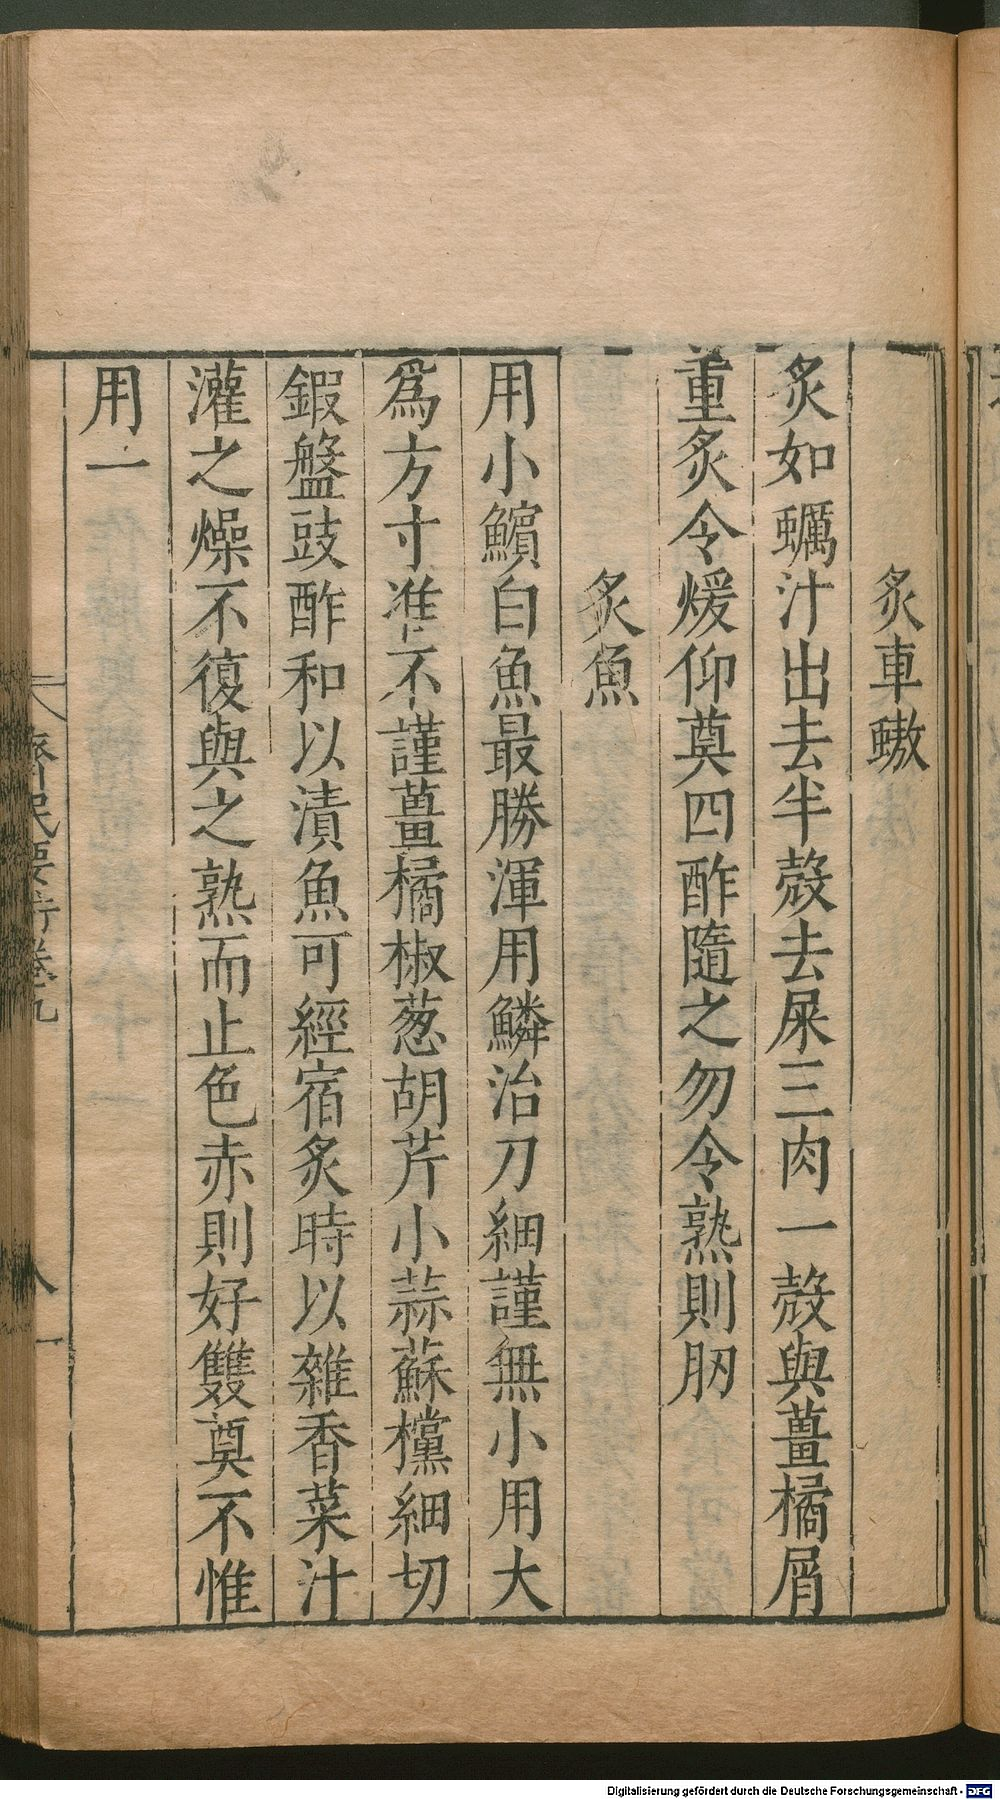 炙車螯
炙如蠣汁出去半殼去屎三肉一殼與薑橘屑
重炙令煖仰奠四酢隨之勿令熟則肕
炙魚
用小鱝白魚最勝渾用鱗治刀細謹無小用大
為方寸准不謹薑橘椒葱胡芹小蒜蘇欓細切
鍜盤豉酢和以漬魚可經宿炙時以雜香菜汁
灌之燥不復與之熟而止色赤則好雙奠不惟
用一
齊民要術卷九
八
Digitalisierung gefördert durch die Deutsche Forschungsgemeinschaft - DFG